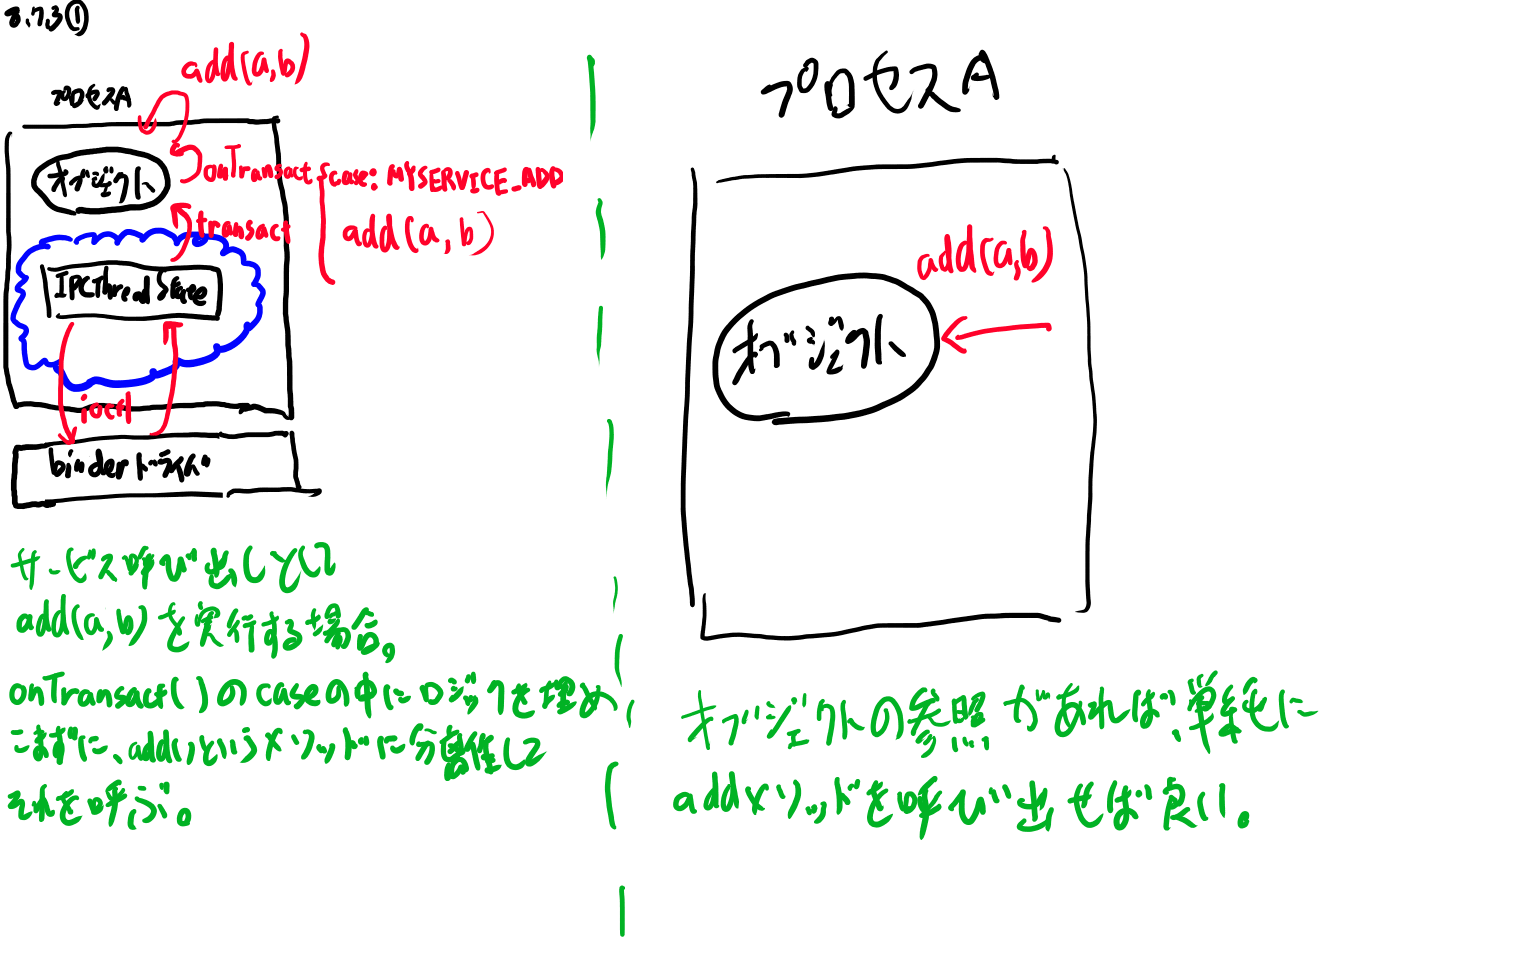 8.7.3①
add(a,b)
プロセスA
オブジェクト
onTransact
case: MYSERVICE_ADD
add(a,b)
transact
IPCThreadState
ioctl
binderドライバ
サービス呼び出しとして
add(a,b)を実行する場合。
onTransact()のcaseの中にロジックを埋め
こまずに、add()というメソッドに分離して
それを呼ぶ。
プロセスA
add(a,b)
オブジェクト
オブジェクトの参照があれば、単純に
addメソッドを呼び出せば良い。